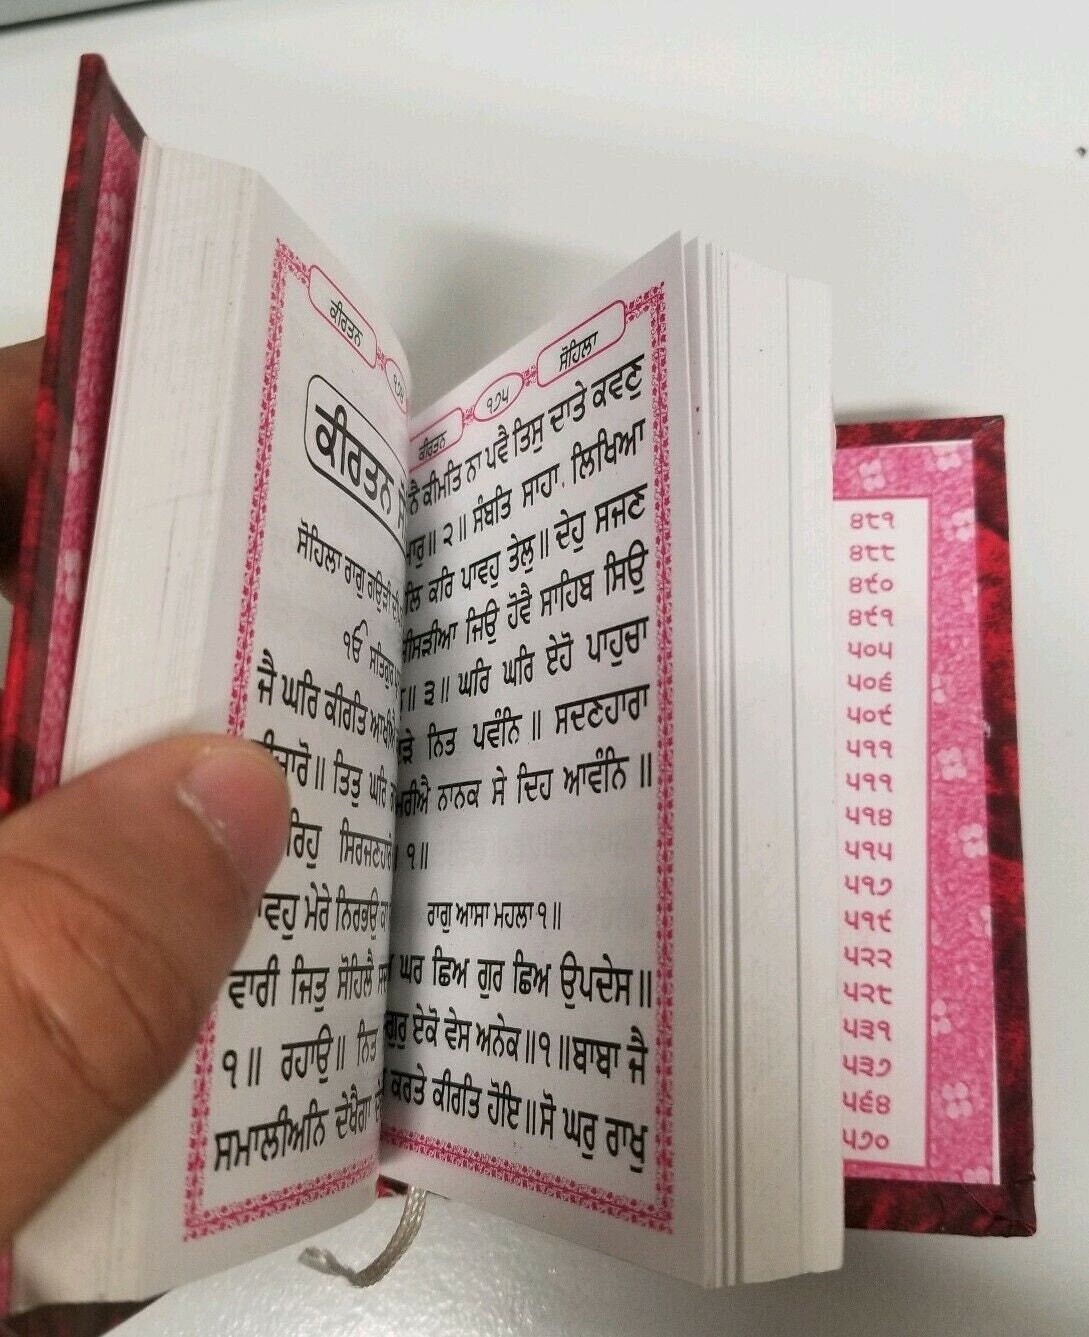 ਕੀਰਤਨ
ਕੀਰਤਨ
ਸੋਹਿਲਾ ਰਾਗੁ ਗਉੜੀ
ੴ ਸਤਿਗੁਰ
ਜੈ ਘਰਿ ਕੀਰਤਿ ਆਖੀਐ
ਤਿਤੁ ਘਰਿ
ਸਿਰਜਣਹਾਰੋ
ਮੇਰੇ ਨਿਰਭਉ ਕਾ
ਵਾਰੀ ਜਿਤੁ ਸੋਹਿਲੈ ਸਦਾ
੧॥ ਰਹਾਉ॥ ਨਿਤ
ਸਮਾਲੀਅਨਿ ਦੇਖੈਗਾ
ਕੀਰਤਨ ੧੭੫ ਸੋਹਿਲਾ
ਕੀਮਤਿ ਨਾ ਪਵੈ ਤਿਸੁ ਦਾਤੇ ਕਵਣੁ
੨॥ ਸੰਬਤਿ ਸਾਹਾ ਲਿਖਿਆ
ਕਰਿ ਪਾਵਹੁ ਤੇਲੁ॥ ਦੇਹੁ ਸਜਣ
ਜਿਉ ਹੋਵੈ ਸਾਹਿਬ ਸਿਉ
੩॥ ਘਰਿ ਘਰਿ ਏਹੋ ਪਾਹੁਚਾ
ਨਿਤ ਪਵੰਨਿ॥ ਸਦਣਹਾਰਾ
ਨਾਨਕ ਸੇ ਦਿਹ ਆਵੰਨਿ॥
੧॥
ਰਾਗੁ ਆਸਾ ਮਹਲਾ ੧॥
ਘਰ ਛਿਅ ਗੁਰ ਛਿਅ ਉਪਦੇਸ॥
ਗੁਰੁ ਏਕੋ ਵੇਸ ਅਨੇਕ॥੧॥ਬਾਬਾ ਜੈ
ਕਰਤੇ ਕੀਰਤਿ ਹੋਇ॥ਸੋ ਘਰੁ ਰਾਖੁ
੪੮੧
੪੮੮
੪੯੦
੪੯੧
੫੦੫
੫੦੬
੫੦੯
੫੧੧
੫੧੧
੫੧੪
੫੧੫
੫੧੭
੫੧੯
੫੨੨
੫੨੮
੫੩੧
੫੩੭
੫੬੪
੫੭੦